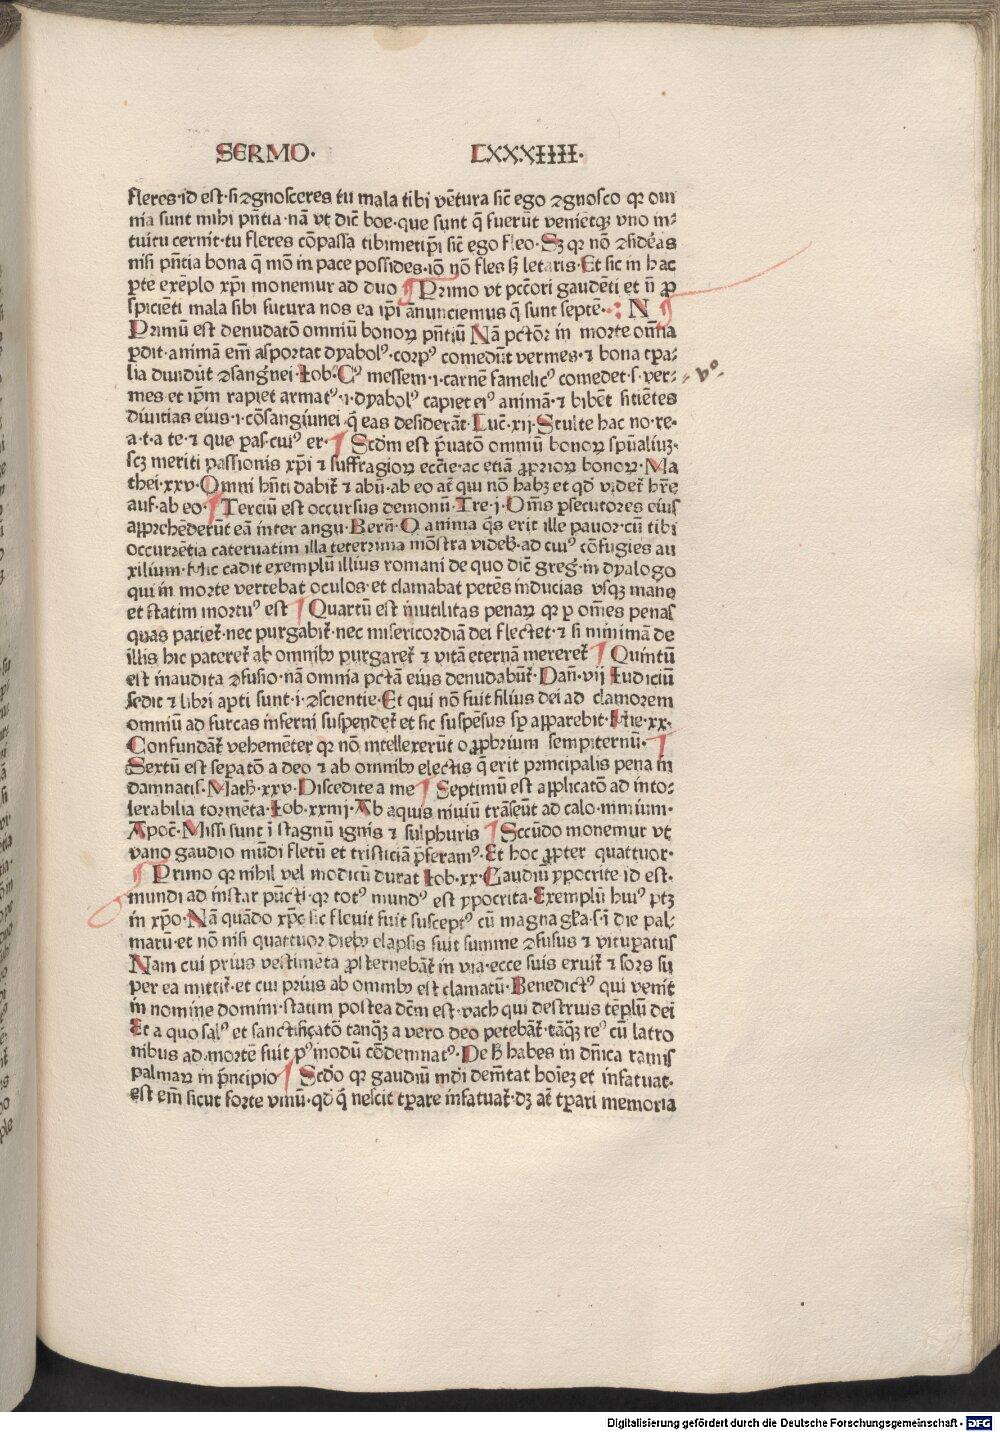 SERMO· LXXXIIII·
fleres·id est·si ꝯgnosceres tu mala tibi vẽtura sic̃ ego ꝯgnosco qꝛ om
nia sunt mihi pñtia·nã vt dic̃ boe·que sunt q̃ fuerũt venietqꝫ vno in⸗
tuitu cernit·tu fleres cõpassa tibimetip̃i sic̃ ego fleo·Sꝫ qꝛ nõ ꝯsid̃eas
nisi pñtia bona q̃ mõ in pace possides·iõ nõ fles sꝫ letaris·Et sic in hac
ꝑte exẽplo xp̃i monemur ad duo ¶ Primo vt pc̃cõri gaudẽti et ñ ꝓ
spiciẽti mala sibi futura nos ea ip̃i ãnunciemus q̃ sunt septẽ· : N ¶
Primũ est denudatõ omniũ bonoꝝ pñtiũ Nã pctõr in morte om̃ia
ꝑdit·animã em̃ asportat dyabolꝰ·corpꝰ comedũt vermes·⁊ bona tꝑa⸗
lia diuidũt ꝯsang̃nei·Iob·Cꝰ messem·i·carnẽ famelicꝰ comedet·s·ver⸗ = vº.
mes et ip̃m rapiet armatꝰ·i·dyabolꝰ capiet eiꝰ animã·⁊ bibẽt sitiẽtes
diuitias eius·i·cõsangiunei·q̃ eas desiderãt·Luc̃·xij·Stulte hac no·re⸗
a·t·a te·⁊ que pas·cuiꝰ er·¶ Scdm est p̃uatõ omniũ bonoꝝ spũaliuꝫ·
scꝫ meriti passionis xp̃i ⁊ suffragioꝝ eccl̃ie·ac etiã ꝓprioꝝ bonoꝝ·Ma
thei·xxv·Omni hñti dabit̃ ⁊ abũ·ab eo at̃ qui nõ habꝫ et qd̃ videt̃ hr̃e
auf·ab eo·¶ Terciũ est occursus demonũ·Tre·j·Om̃s ꝑsecutores eius
apprehẽderũt eã inter angu·Bern̄·O anima q̃s erit ille pauor·cũ tibi
occurrẽtia cateruatim illa teterrima mõstra videb̃·ad cuiꝰ cõfugies au
xilium·Hic cadit exemplũ illius romani de quo dic̃ greg̃·in dyalogo
qui in morte vertebat oculos·et clamabat petẽs inducias vsqꝫ mane
et statim mortuꝰ est ¶ Quartũ est ĩnutilitas penaꝝ qꝛ ꝑ om̃es penas
quas patiet̃·nec purgabit̃·nec misericordiã dei flectet·⁊ si minimã de
illis hic pateret̃ ab omnibꝰ purgaret̃ ⁊ vitã eternã mereret̃ ¶ Quintũ
est inaudita ꝯfusio·nã omnia pctã eius denudabũt̃·Dañ·vij Iudiciũ
sedit ⁊ libri apti sunt·i·ꝯscientie·Et qui nõ fuit filius dei ad clamorem
omniũ ad furcas inferni suspendet̃ et sic suspẽsus sp̃ apparebit·Hie·xx·
Confundãt̃ vehemẽter qꝛ nõ intellexerũt opprobrium sempiternũ·¶
Sextũ est sepatõ a deo ⁊ ab omnibꝰ electis q̃ erit principalis pena in
damnatis·Math̃·xxv·Discedite a me ¶ Septimũ est applicatõ ad into⸗
lerabilia tormẽta·Iob·xxiiij·Ab aquis niuiũ trãseũt ad calo·nimium·
Apoc̃·Missi sunt ĩ stagnũ ignis ⁊ sulphuris ¶ Secũdo monemur vt
vano gaudio mũdi fletũ et tristiciã p̃feramꝰ·Et hoc ꝓpter quattuor·
¶ Primo qꝛ nihil vel modicũ durat Iob·xx·Gaudiũ ypocrite id est·
mundi ad instar pũcti·qꝛ totꝰ mundꝰ est ypocrita·Exemplũ huiꝰ ptꝫ
in xp̃o·Nã quãdo xp̃c sic fleuit fuit susceptꝰ cũ magna gl̃a·s·ĩ die pal⸗
marũ·et nõ nisi quattuor diebꝰ elapsis fuit summe ꝯfusus ⁊ vituꝑatus
Nam cui prius vestimẽta ꝓsternebãt̃ in via·ecce suis exuit̃ ⁊ sors su
per ea mittit̃·et cui prius ab omnibꝰ est clamatũ·Benedictꝰ qui venit
in nomine domini·statim postea dc̃m est·vach qui destruis tẽplũ dei
Et a quo salꝰ et sanctificatõ tanqꝫ̃ a vero deo petebãt̃·tãqꝫ̃ reꝰ cũ latro
nibus ad mortẽ fuit pꝰmodũ cõdemnatꝰ·De h̃ habes in dñica ramis
palmaꝝ in p̃ncipio ¶ Scdo qꝛ gaudiũ mũdi demẽtat hoĩeꝫ et infatuat·
est em̃ sicut forte vinũ·qd̃ q̃ nescit tꝑare infatuat̃·dꝫ at̃ tꝑari memoria
Digitalisierung gefördert durch die Deutsche Forschungsgemeinschaft - DFG